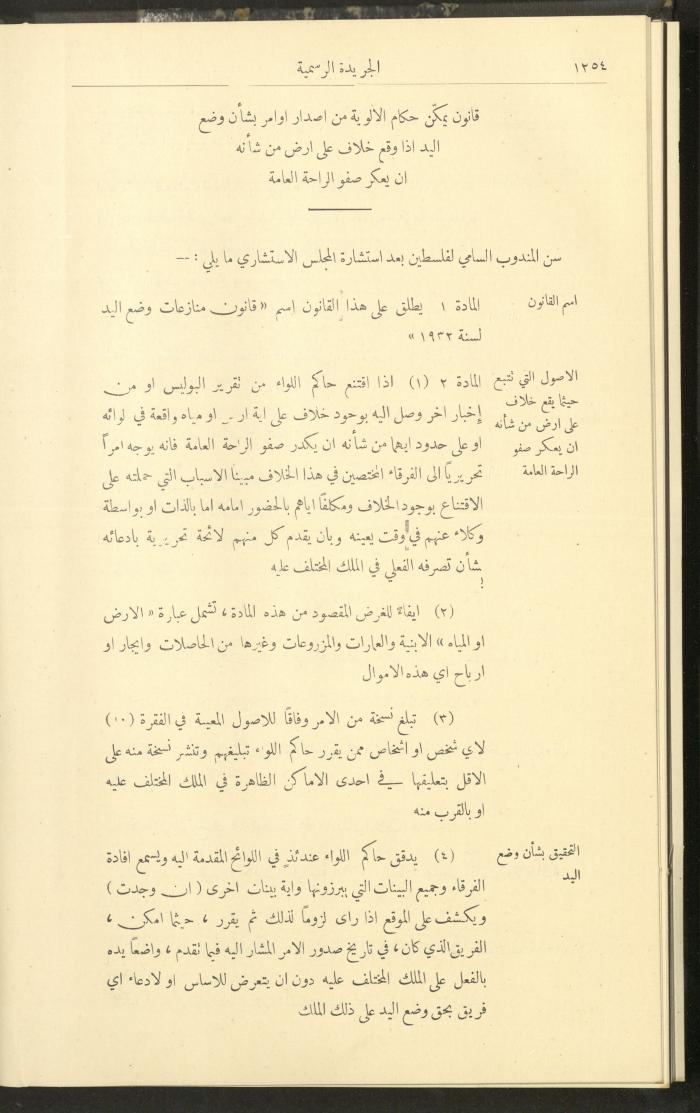 ١٢٥٤
الجريدة الرسمية
قانون يمكّن حكام الالوية من اصدار اوامر بشأن وضع
اليد اذا وقع خلاف على ارض من شأنه
ان يعكر صفو الراحة العامة
سن المندوب السامي لفلسطين بعد استشارة المجلس الاستشاري ما يلي : —
اسم القانون
المادة ١ يطلق على هذا القانون اسم « قانون منازعات وضع اليد
لسنة ١٩٣٢ »
الاصول التي تتبع
حيثما يقع خلاف
على ارض من شأنه
ان يعكر صفو
الراحة العامة
المادة ٢ (١) اذا اقتنع حاكم اللواء من تقرير البوليس او من
إخبار اخر وصل اليه بوجود خلاف على اية او مياه واقعة في لوائه
او على حدود ايهما من شأنه ان يكدر صفو الراحة العامة فانه يوجه امراً
تحريريًا الى الفرقاء المختصين في هذا الخلاف مبينا الاسباب التي حملته على
الاقتناع بوجود الخلاف ومكلفًا اياهم بالحضور امامه اما بالذات او بواسطة
وكلاء عنهم في وقت يعينه وبان يقدم كل منهم لائحة تحريرية بادعائه
بشأن تصرفه الفعلي في الملك المختلف عليه
(٢) ايفاءً للغرض المقصود من هذه المادة ، تشمل عبارة « الارض
او المياه » الابنية والعمارات والمزروعات وغيرها من الحاصلات وايجار او
ارباح اي هذه الاموال
(٣) تبلغ نسخة من الامر وفاقًا للاصول المعينة في الفقرة (١٠)
لاي شخص او اشخاص ممن يقرر حاكم اللواء تبليغهم وتنشر نسخة منه على
الاقل بتعليقها في احدى الاماكن الظاهرة في الملك المختلف عليه
او بالقرب منه
التحقيق بشأن وضع
اليد
(٤) يدقق حاكم اللواء عندئذٍ في اللوائح المقدمة اليه ويسمع افادة
الفرقاء وجميع البينات التي يبرزونها واية بينات اخرى ( ان وجدت )
ويكشف على الموقع اذا راى لزومًا لذلك ثم يقرر ، حيثما امكن ،
الفريق الذي كان ، في تاريخ صدور الامر المشار اليه فيما تقدم ، واضعًا يده
بالفعل على الملك المختلف عليه دون ان يتعرض للاساس او لادعاء اي
فريق بحق وضع اليد على ذلك الملك